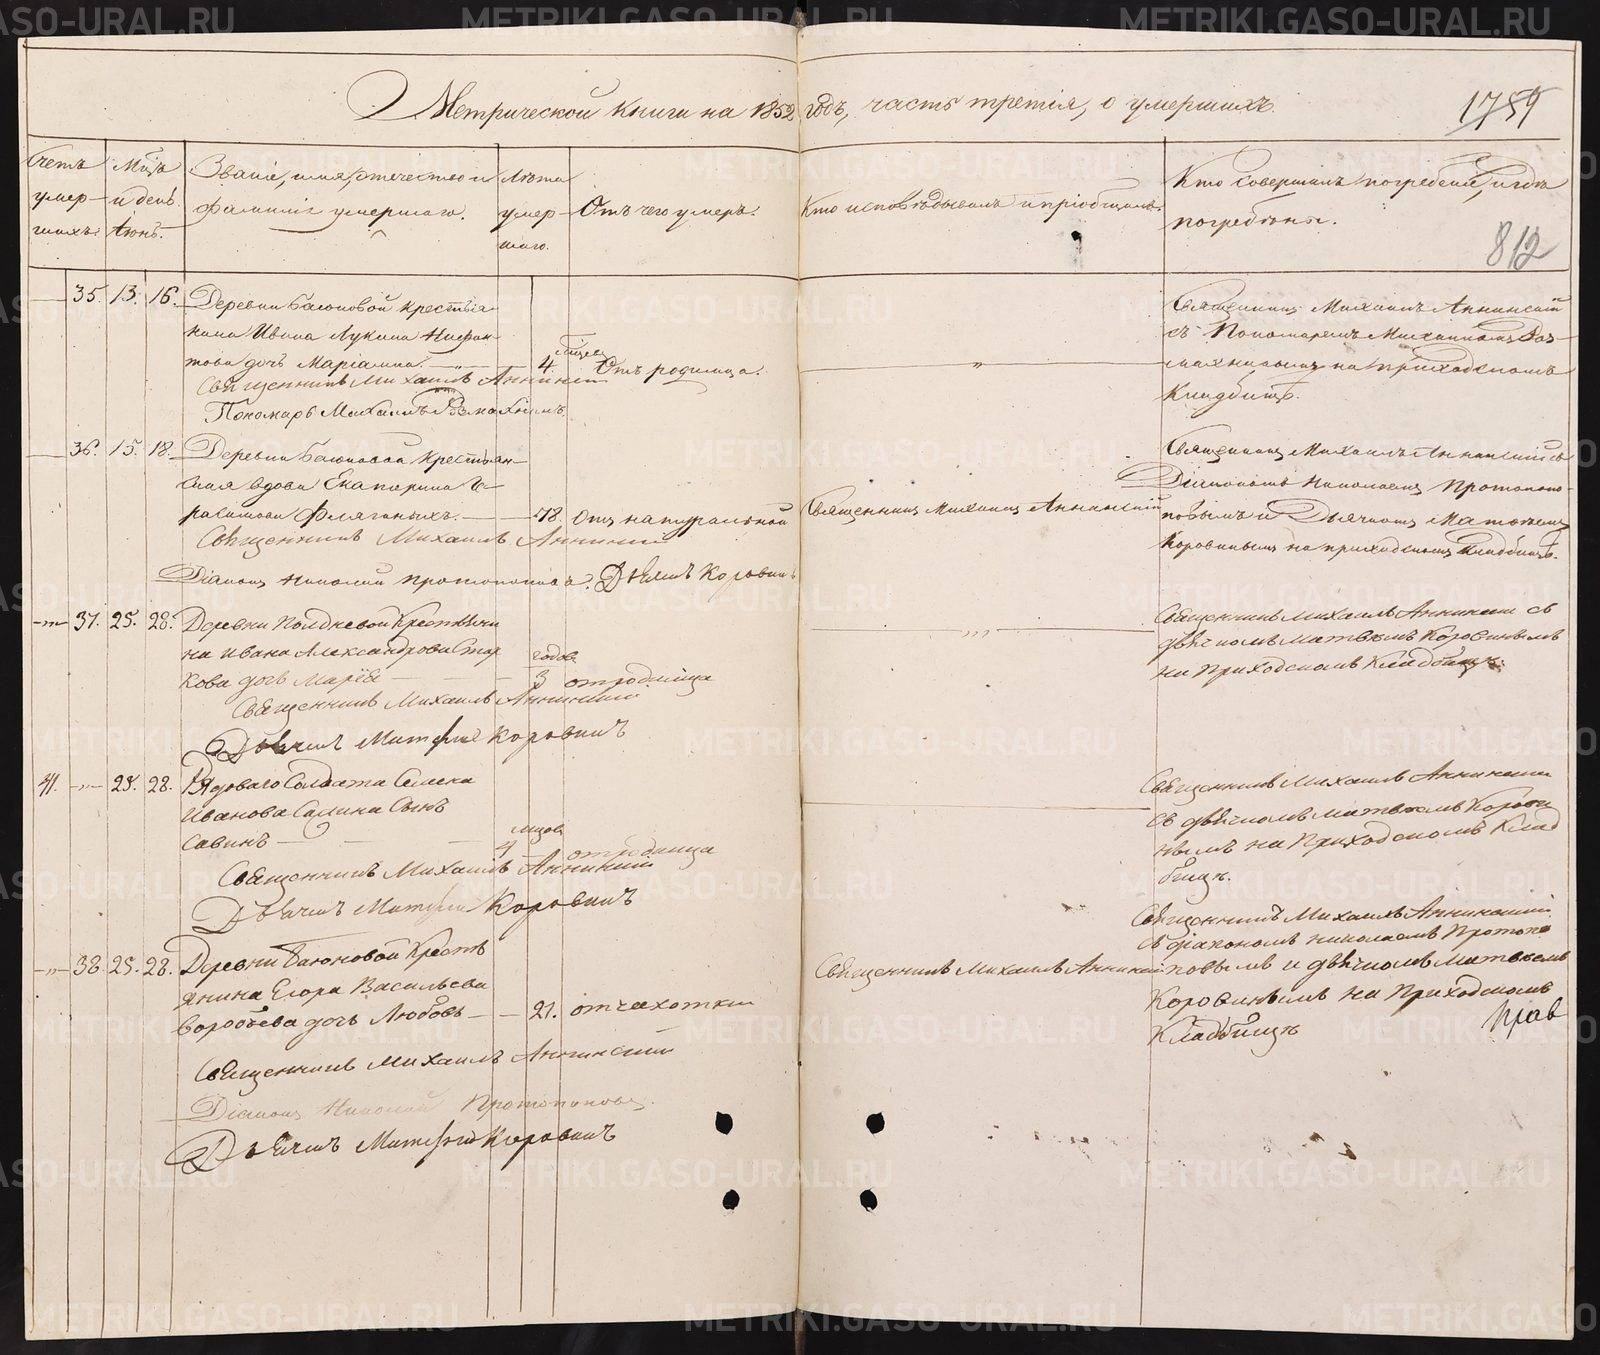 METRIKI.GASO-URAL.RU
Метрической книги на 1852 годъ, часть третія, о умершихъ.
1759
812
Счетъ умер-шихъ.
Мц҃ъ и день Іюнь.
Званіе, имя, отечество и фамилія умершаго.
Лѣта умер-шаго.
Отъ чего умеръ.
Кто исповѣдывалъ и пріобщалъ.
Кто совершалъ погребеніе, и гдѣ погребены.
35. 13. 16. Деревни Баюновой крестья-
нина Ивана Лукина
дочь Маріамна. 4 Отъ родимца.
Священникъ Михаилъ Аннинскій
Пономарь Михаилъ
Священникъ Михаилъ Аннинскій
съ Пономаремъ Михаиломъ
на приходскомъ
Кладбищѣ.
36. 15. 18. Деревни Баюновой крестьян-
ская вдова Екатерина
78. Отъ натуральной
Священникъ Михаилъ Аннинскій
Діаконъ Николай Протопоповъ. Дьячекъ Коровинъ
Священникъ Михаилъ Аннинскій
Священникъ Михаилъ Аннинскій съ
Діакономъ Николаемъ Протопопо-
повымъ и Дьячкомъ Матвеемъ
Коровинымъ на приходскомъ кладбищѣ.
37. 25. 28. Деревни Полдневой Крестьяни
на Ивана Александрова Стар
кова дочь Марѳа годов 3 от родимца
Священникъ Михаилъ Аннинскій
Дьячекъ Матфей Коровинъ
Священникъ Михаилъ Аннинскій съ
дьячкомъ Матвеемъ Коровинымъ
на Приходскомъ Кладбищѣ.
41. 25. 28. Рядоваго Солдата Семена
Иванова Салина Сынъ
Савинъ 4 мцов от родимца
Священникъ Михаилъ Аннинскій
Дьячекъ Матфей Коровинъ
Священникъ Михаилъ Аннинскій
съ дьячкомъ Матвеемъ Корови
нымъ на Приходскомъ Клад
бищѣ.
38. 25. 28. Деревни Баюновой Кресть
янина Егора Васильева
Воробьева дочь Любовь 21. от чахотки
Священникъ Михаилъ Аннинскій
Діаконъ Николай Протопоповъ
Дьячекъ Матфей Коровинъ
Священникъ Михаилъ Аннинскій
Священникъ Михаилъ Аннинскій
съ діакономъ Николаемъ Протопо
повымъ и дьячкомъ Матвеемъ
Коровинымъ на Приходскомъ
Кладбищѣ
Прав